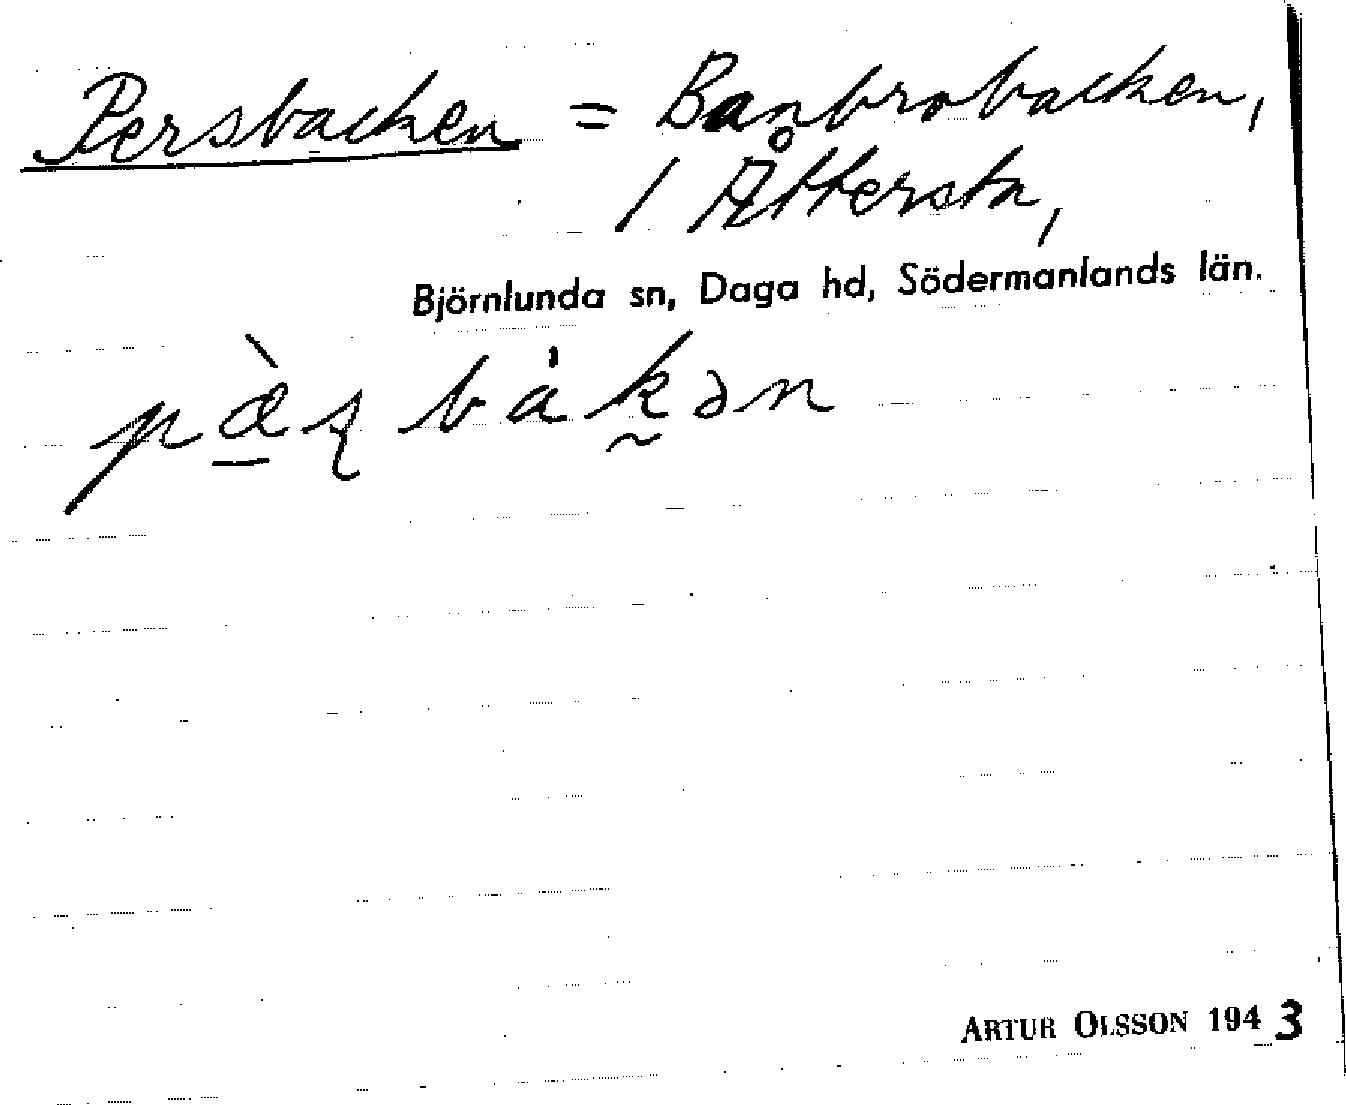 Persbacken = Banbrobacken,
/ Åttersta,
Björnlunda sn, Daga hd, Södermanlands län.
pæ̀ʂbákən
ARTUR OLSSON 1943